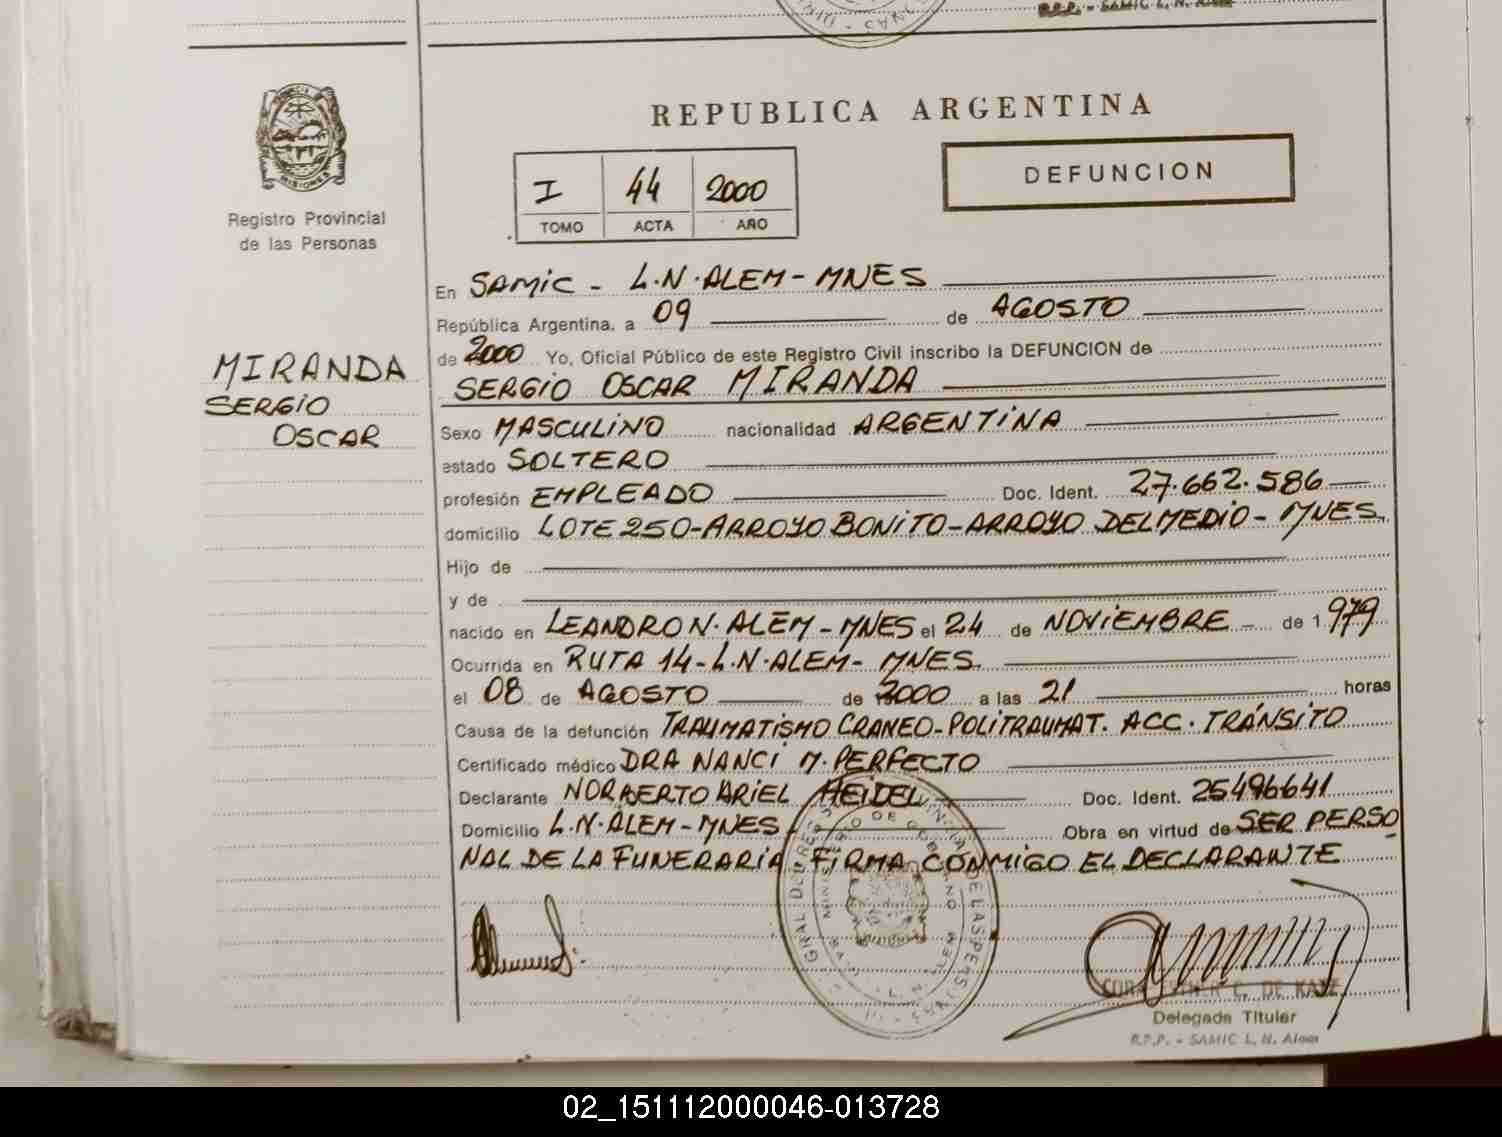 R.P.P. - SAMIC L. N. Alem
MISIONES
Registro Provincial
de las Personas
MIRANDA
SERGIO
OSCAR
REPUBLICA ARGENTINA
I 44 2000
TOMO ACTA AÑO
DEFUNCION
En SAMIC - L.N.ALEM - MNES
República Argentina, a 09 de AGOSTO
de 2000 Yo, Oficial Público de este Registro Civil inscribo la DEFUNCION de
SERGIO OSCAR MIRANDA
Sexo MASCULINO nacionalidad ARGENTINA
estado SOLTERO
profesión EMPLEADO Doc. Ident. 27.662.586
domicilio LOTE 250-ARROYO BONITO-ARROYO DEL MEDIO - MNES.
Hijo de
y de
nacido en LEANDRO N. ALEM - MNES el 24 de NOVIEMBRE - de 1.979
Ocurrida en RUTA 14-L.N.ALEM- MNES.
el 08 de AGOSTO de 2000 a las 21 horas
Causa de la defunción TRAUMATISMO CRANEO-POLITRAUMAT. ACC. TRÁNSITO
Certificado médico DRA NANCI M. PERFECTO
Declarante NORBERTO ARIEL HEIDEL Doc. Ident. 25496641
Domicilio L.N.ALEM - MNES - Obra en virtud de SER PERSO
NAL DE LA FUNERARIA FIRMA CONMIGO EL DECLARANTE
DE KATZ
Delegada Titular
R.P.P. - SAMIC L. N. Alem
02_151112000046-013728